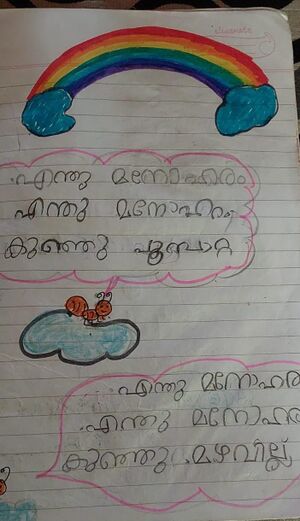 എന്തു മനോഹരം
എന്തു മനോഹരം
കുഞ്ഞു പൂമ്പാറ്റ
എന്തു മനോഹര
എന്തു മനോഹര
കുഞ്ഞു മഴവില്ല്